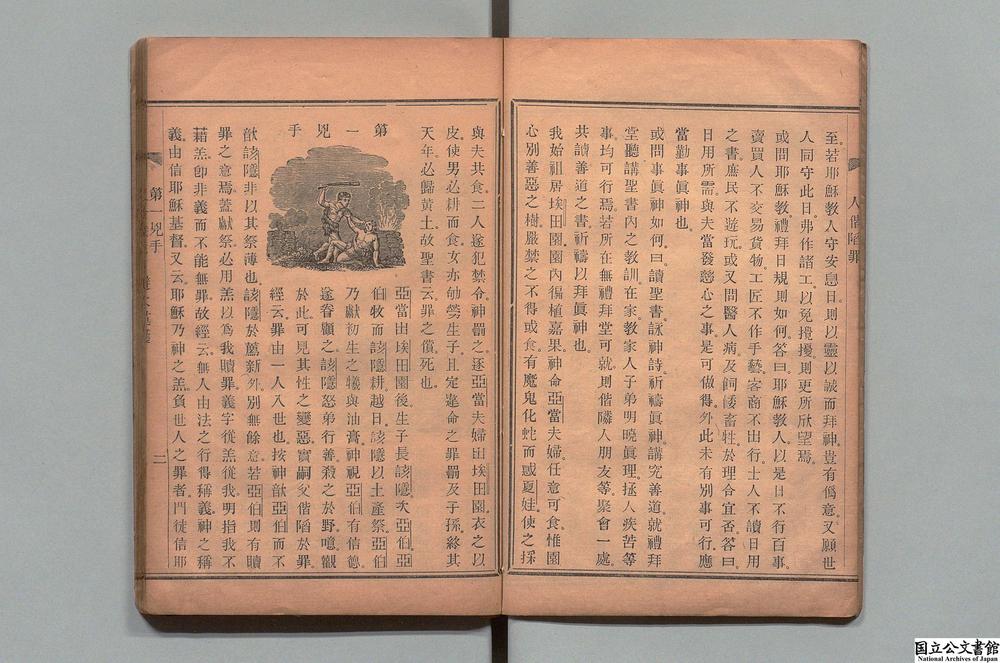 人偕陷罪
至若耶穌教人守安息日則以靈以誠而拜神。豈有僞意。又願世
人同守此日。弗作諸工以免攪擾。則更所欣望焉。
或問耶穌教禮拜日規則如何。答曰耶穌教人。以是日不行百事。
賣買人不交易貨物。工匠不作手藝。客商不出行。士人不讀日用
之書。庶民不遊玩。或又問醫人病及飼餧畜牲。於理合宜否。答曰。
日用所需與夫當發慈心之事。是可做得。外此未有別事可行。應
當勤事眞神也。
或問事眞神如何。曰讀聖書。詠神詩。祈禱眞神。講究善道。就禮拜
堂聽講聖書內之教訓。在家教家人子弟明曉眞理。拯人疾苦等
事均可行焉。若所在無禮拜堂可就。則偕隣人朋友等聚會一處。
共誦善道之書。祈禱以拜眞神也。
我始祖居埃田園。園內徧植嘉果。神命亞當夫婦任意可食。惟園
心別善惡之樹。嚴禁之不得或食。有魔鬼化蛇而惑夏娃。使之採
與夫共食。二人遂犯禁令。神罰之。逐亞當夫婦出埃田園。衣之以
皮。使男必耕而食。女亦劬勞生子。且定違命之罪。罰及子孫。終其
天年。必歸黃土。故聖書云。罪之價死也。
第一兇手
亞當出埃田園後。生子長該隱。次亞伯。亞
伯牧而該隱耕。越日該隱以土產祭。亞伯
乃獻初生之犧與油膏。神視亞伯有信德
遂眷顧之。該隱怒弟行善。殺之於野。噫觀
於此可見其性之變惡。實嗣父偕陷於罪。
經云。罪由一人入世也。按神歆亞伯而不
歆該隱。非以其祭薄也。該隱於薦新外。別無餘意。若亞伯則有贖
罪之意焉。蓋獻祭必用羔。以爲我贖罪。義字從羔從我。明指我不
藉羔卽非義而不能無罪。故經云。無人由法之行得稱義。神之稱
義。由信耶穌基督。又云。耶穌乃神之羔。負世人之罪者。門徒信耶
第一兇手
二
国立公文書館
National Archives of Japan